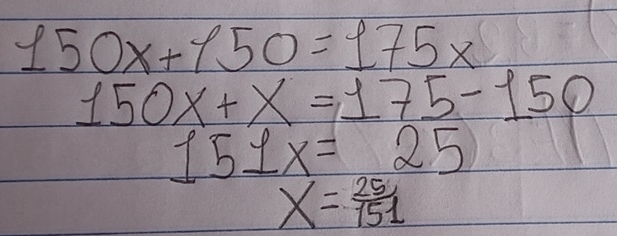 150x+150=175x
150x+x=175-150
151x= 25
x=25/151